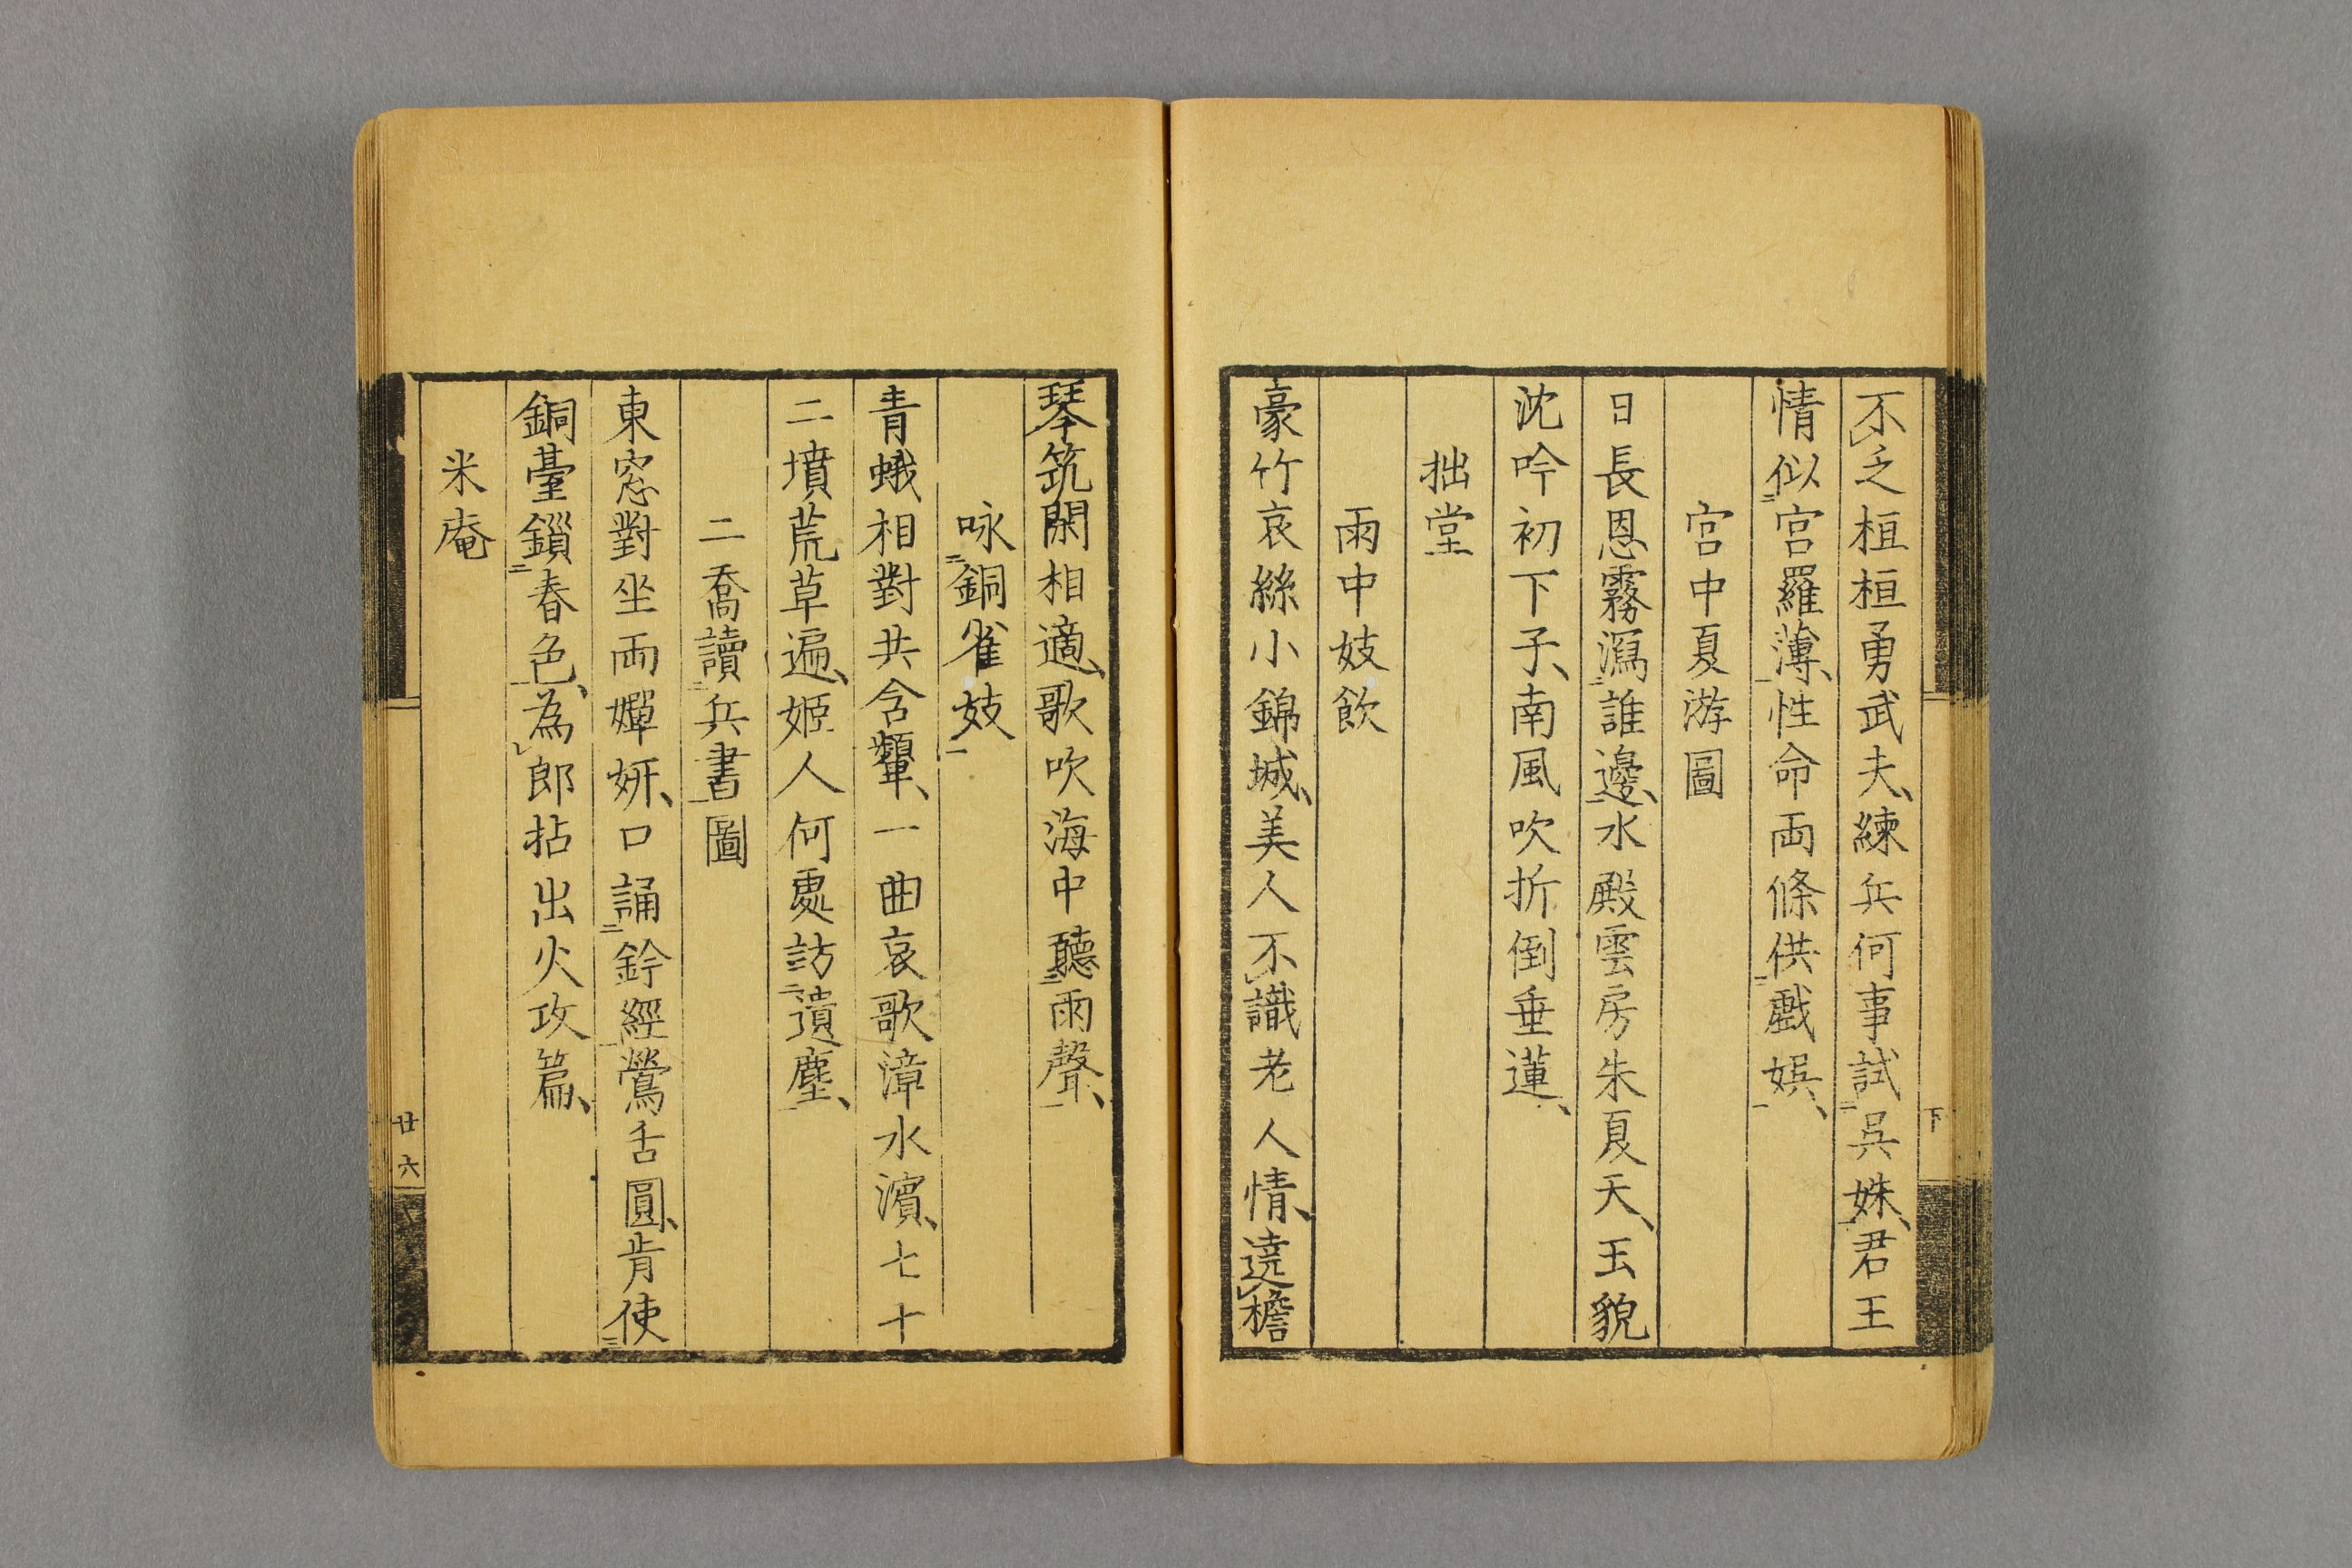 不乏桓桓勇武夫、練兵何事試吳姝、君王
情似宮羅薄、性命両條供戯娯、
宮中夏游圖
日長恩霧瀉誰邊、水殿雲房朱夏天、玉貌
沈吟初下子、南風吹折倒垂蓮、
拙堂
雨中妓飲
豪竹哀絲小錦城、美人不識老人情、遶檐
下
琴筑閑相適、歌吹海中聽雨聲、
咏銅雀妓
青蛾相對共含顰、一曲哀歌漳水濱、七十
二墳荒草遍、姬人何處訪遺塵、
二喬讀兵書圖
東窓對坐両嬋妍、口誦鈐經鶯舌圓、肯使
銅臺鎖春色、為郎拈出火攻篇、
米庵
廿六